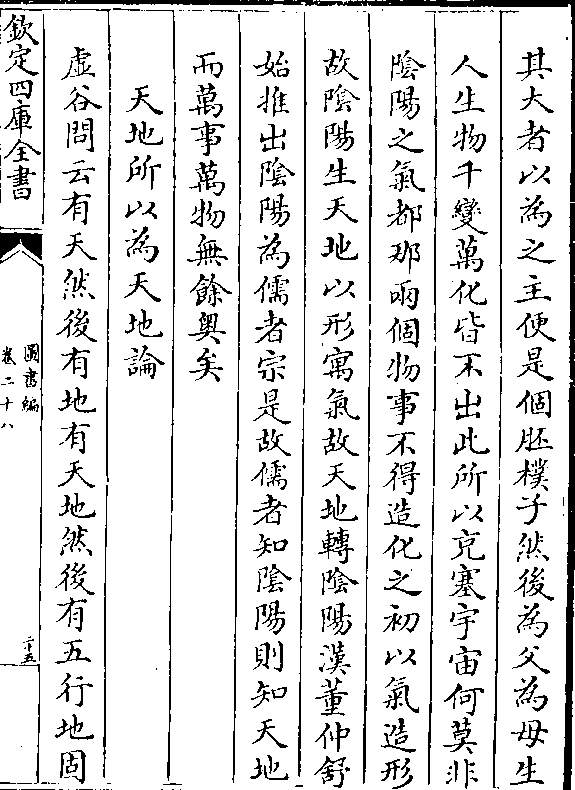 其大者以為之主便是個胚樸子然後為父為母生
人生物千變萬化皆不出此所以充塞宇宙何莫非
陰陽之氣都那兩個物事不得造化之初以氣造形
故陰陽生天地以形寓氣故天地轉陰陽漢董仲舒
始推出陰陽為儒者宗是故儒者知陰陽則知天地
而萬事萬物無餘奧矣
天地所以為天地論
虛谷問云有天然後有地有天地然後有五行地固
欽定四庫全書
圖書編
卷二十八
二十五